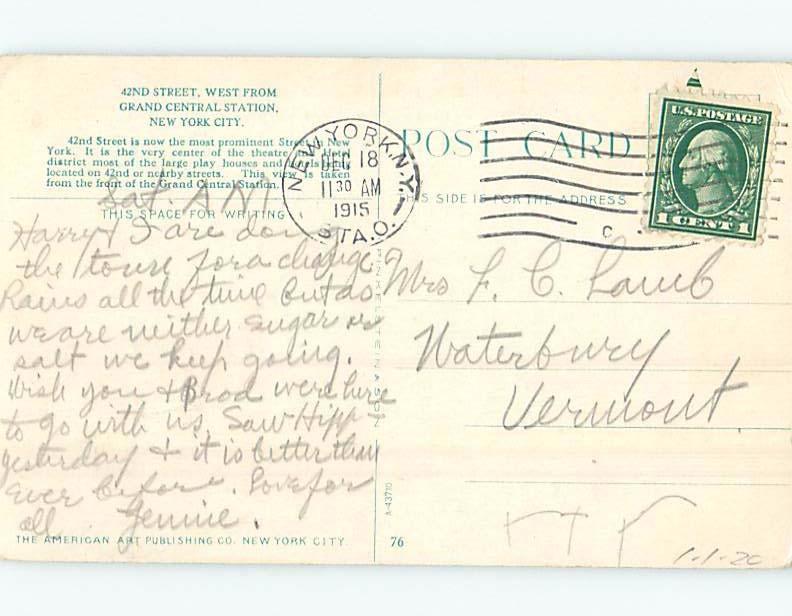 42ND STREET, WEST FROM
GRAND CENTRAL STATION,
NEW YORK CITY.
42nd Street is now the most prominent Street in New
York. It is the very center of the theatre and Hotel
district most of the large play houses and hotels being
located on 42nd or nearby streets. This view is taken
from the front of the Grand Central Station.
Sat. A M
THIS SPACE FOR WRITING
Harry & I are doing
the town for a change
Rains all the time but as
we are neither sugar or
salt we keep going.
Wish you & Brod were here
to go with us. Saw Hipp
yesterday & it is better than
ever before. Love for
all. Jennie.
THE AMERICAN ART PUBLISHING CO. NEW YORK CITY.
A-43710
76
NEW YORK, N.Y.
DEC 18
11 30 AM
1915
STA. O.
POST CARD
THIS SIDE IS FOR THE ADDRESS
C
U.S. POSTAGE
1 CENT 1
Mrs F. C. Lamb
Waterbury
Vermont
1-1-20